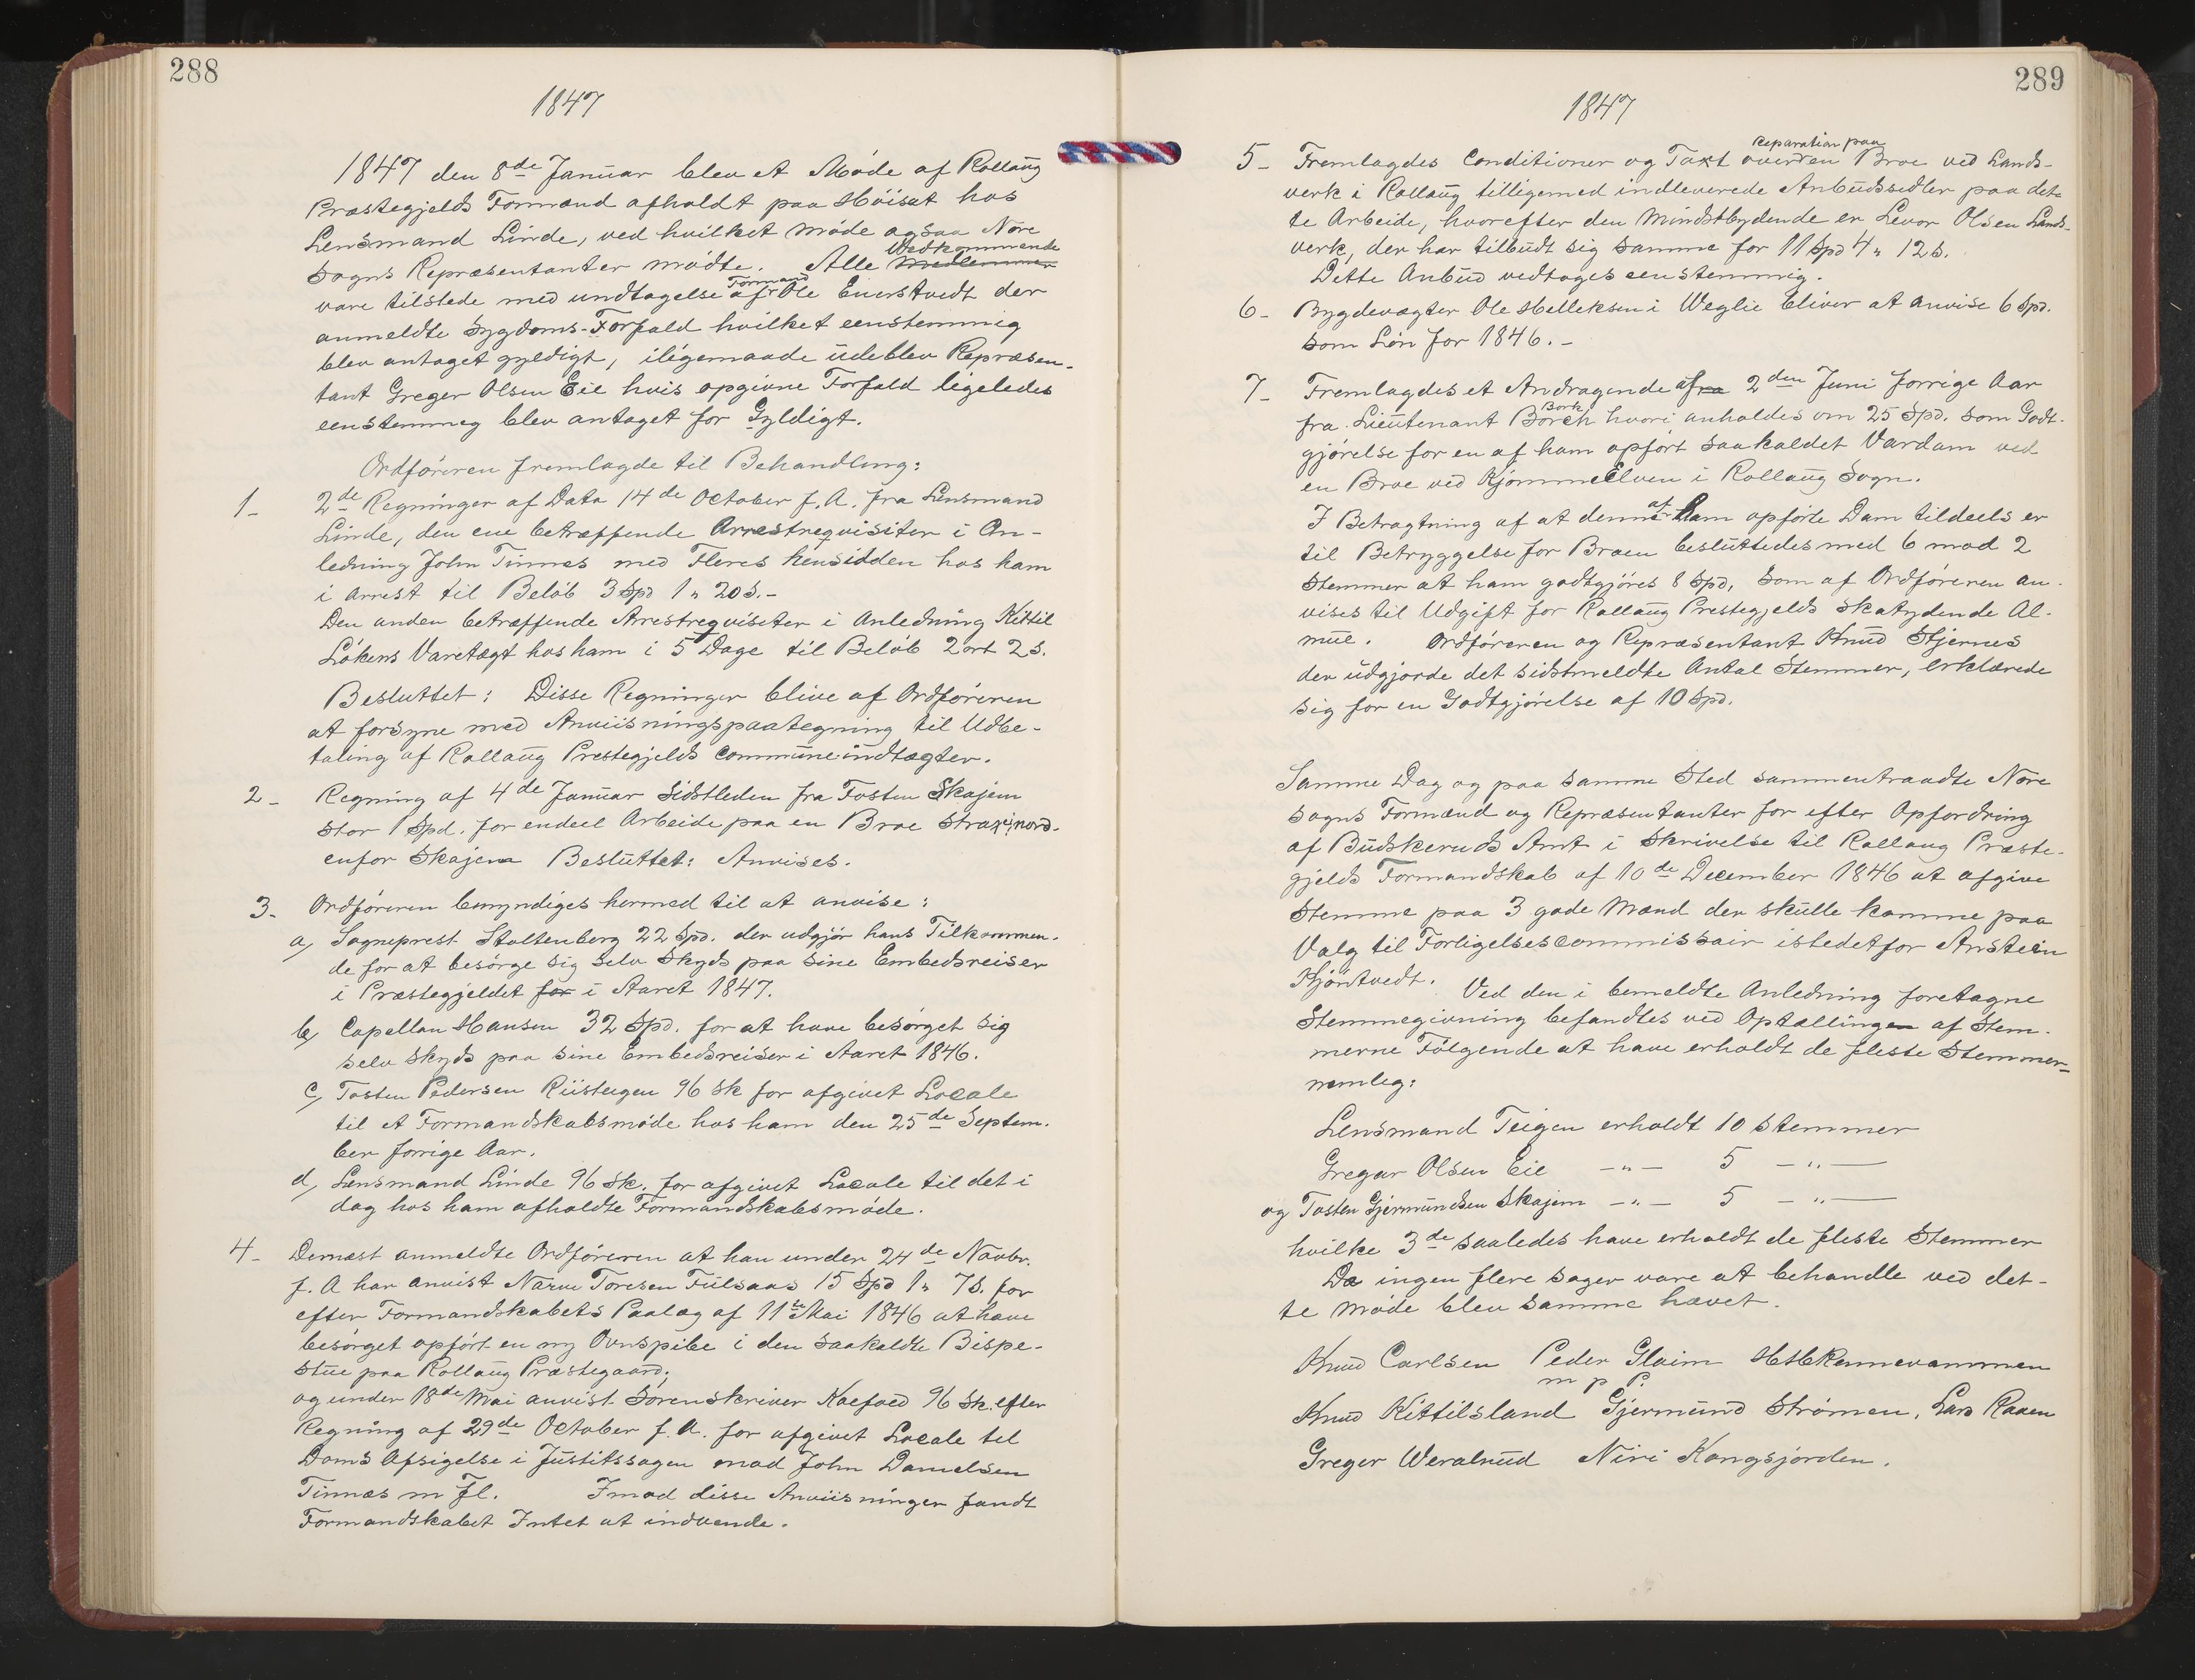 288
1847
1847 den 8de Januar blev et Møde af Rollaug
Præstegjelds Formænd afholdt paa Høiset hos
Lensmand Linde, ved hvilket møde ogsaa Nore
Sogns Repræsentanter mødte. Alle Medlemmer Vedkommende
vare tilstede med undtagelse af Formand Ole Enerstvedt der
anmeldte Sygdoms-Forfald hvilket eenstemmig
blev antaget gyldigt, iligemaade udeblev Repræsen-
tant Greger Olsen Eie hvis opgivne Forfald ligeledes
eenstemmig blev antaget for Gyldigt.
Ordføreren fremlagde til Behandling:
1- 2de Regninger af Dato 14de October f.A. fra Lensmand
Linde, den ene betræffende Arrestreqvisiter i An-
ledning John Tinnes med Fleres hensidden hos ham
i Arrest til Beløb 3 Spd 1 " 20 s.-
Den anden betræffende Arrestreqvisiter i Anledning Kittil
Løkens Varetægt hos ham i 5 Dage til Beløb 2 ort 2 s.
Besluttet: Disse Regninger blive af Ordføreren
at forsyne med Anviisningspaategning til Udbe-
taling af Rollaug Prestegjelds communeindtægter.
2- Regning af 4de Januar sidstleden fra Tosten Skajem
stor 1 Spd. for endeel Arbeide paa en Broe strax nord-
enfor Skajem Besluttet: Anvises.
3- Ordføreren bemyndiges hermed til at anvise:
a, Sogneprest Stoltenberg 22 Spd. der udgjør hans Tilkommen-
de for at besørge sig selv Skyds paa sine Embedsreiser
i Præstegjeldet for i Aaret 1847.
b, Capellan Hansen 32 Spd. for at have besørget sig
selv skyds paa sine Embedsreiser i Aaret 1846.
c, Tosten Pedersen Riisteigen 96 sk for afgivet Locale
til et Formandskabsmøde hos ham den 25de Septem-
ber forrige Aar.
d, Lensmand Linde 96 sk. for afgivet Locale til det i
dag hos ham afholdte Formandskabsmøde.
4- Dernæst anmeldte Ordføreren at han under 24de Novbr.
f. A har anvist Narve Toresen Fulsaas 15 Spd 1 " 7 s. for
efter Formandskabets Paalæg af 11te Mai 1846 at have
besørget opført en ny Ovnspibe i den saakaldte Bispe-
stue paa Rollaug Præstegaard;
og under 18de Mai anvist Sorenskriver Koefoed 96 sk. efter
Regning af 29de October f. A. for afgivet Locale til
Doms Afsigelse i Justitssagen mod John Danielsen
Tinnæs m fl. Imod disse Anviisninger fandt
Formandskabet Intet at indvende.
289
1847
5- Fremlagdes Conditioner og Taxt over den reparation paa Broe ved Lands-
verk i Rollaug tilligemed indleverede Anbudssedler paa det-
te Arbeide, hvorefter den Mindstbydende er Levor Olsen Lands-
verk, der har tilbudt sig samme for 11 Spd 4 " 12 s.
Dette Anbud vedtoges eenstemmig.
6- Bygdevægter Ole Helleksen i Weglie bliver at anvise 6 Spd.
som Løn for 1846.-
7- Fremlagdes et Andragende af fra 2den Juni forrige Aar
fra Lieutenant Borch Bork hvori anholdes om 25 Spd. som Godt-
gjørelse for en af ham opført saakaldet Vardam ved
en Broe ved Kjømme Elven i Rollaug Sogn.
I Betragtning af at denne af ham opførte Dam tildeels er
til Betryggelse for Broen besluttedes med 6 mod 2
Stemmer at ham godtgjøres 8 Spd, som af Ordføreren an-
vises til Udgift for Rollaug Prestegjelds skatydende Al-
mue. Ordføreren og Repræsentant Knud Stjernes
der udgjorde det sidstmeldte Antal Stemmer, erklærede
sig for en Godtgjørelse af 10 Spd.
Samme Dag og paa samme Sted sammentraadte Nore
Sogns Formænd og Repræsentanter for efter Opfordring
af Budskeruds Amt i Skrivelse til Rollaug Præste-
gjelds Formandskab af 10de December 1846 at afgive
Stemme paa 3 gode Mænd der skulle komme paa
Valg til Forligelsescommissair istedetfor Anstein
Kjøntvedt. Ved den i bemeldte Anledning foretagne
Stemmegivning befandtes ved Optællingen af Stem-
merne Følgende at have erholdt de fleste Stemmer-
nemlig:
Lensmand Teigen erholdt 10 stemmer
Gregar Olsen Eie -"- 5 -"-
og Tosten Gjermundsen Skajem -"- 5 -"-
hvilke 3de saaledes have erholdt de fleste Stemmer
Da ingen flere sager vare at behandle ved det-
te Møde blev samme hævet.
Knud Carlsen Peder Glaim
m p P.
Knud Kittilsland Gjermund Strømen, Lars Raaen
Greger Weralrud Niri Kongsjorden.